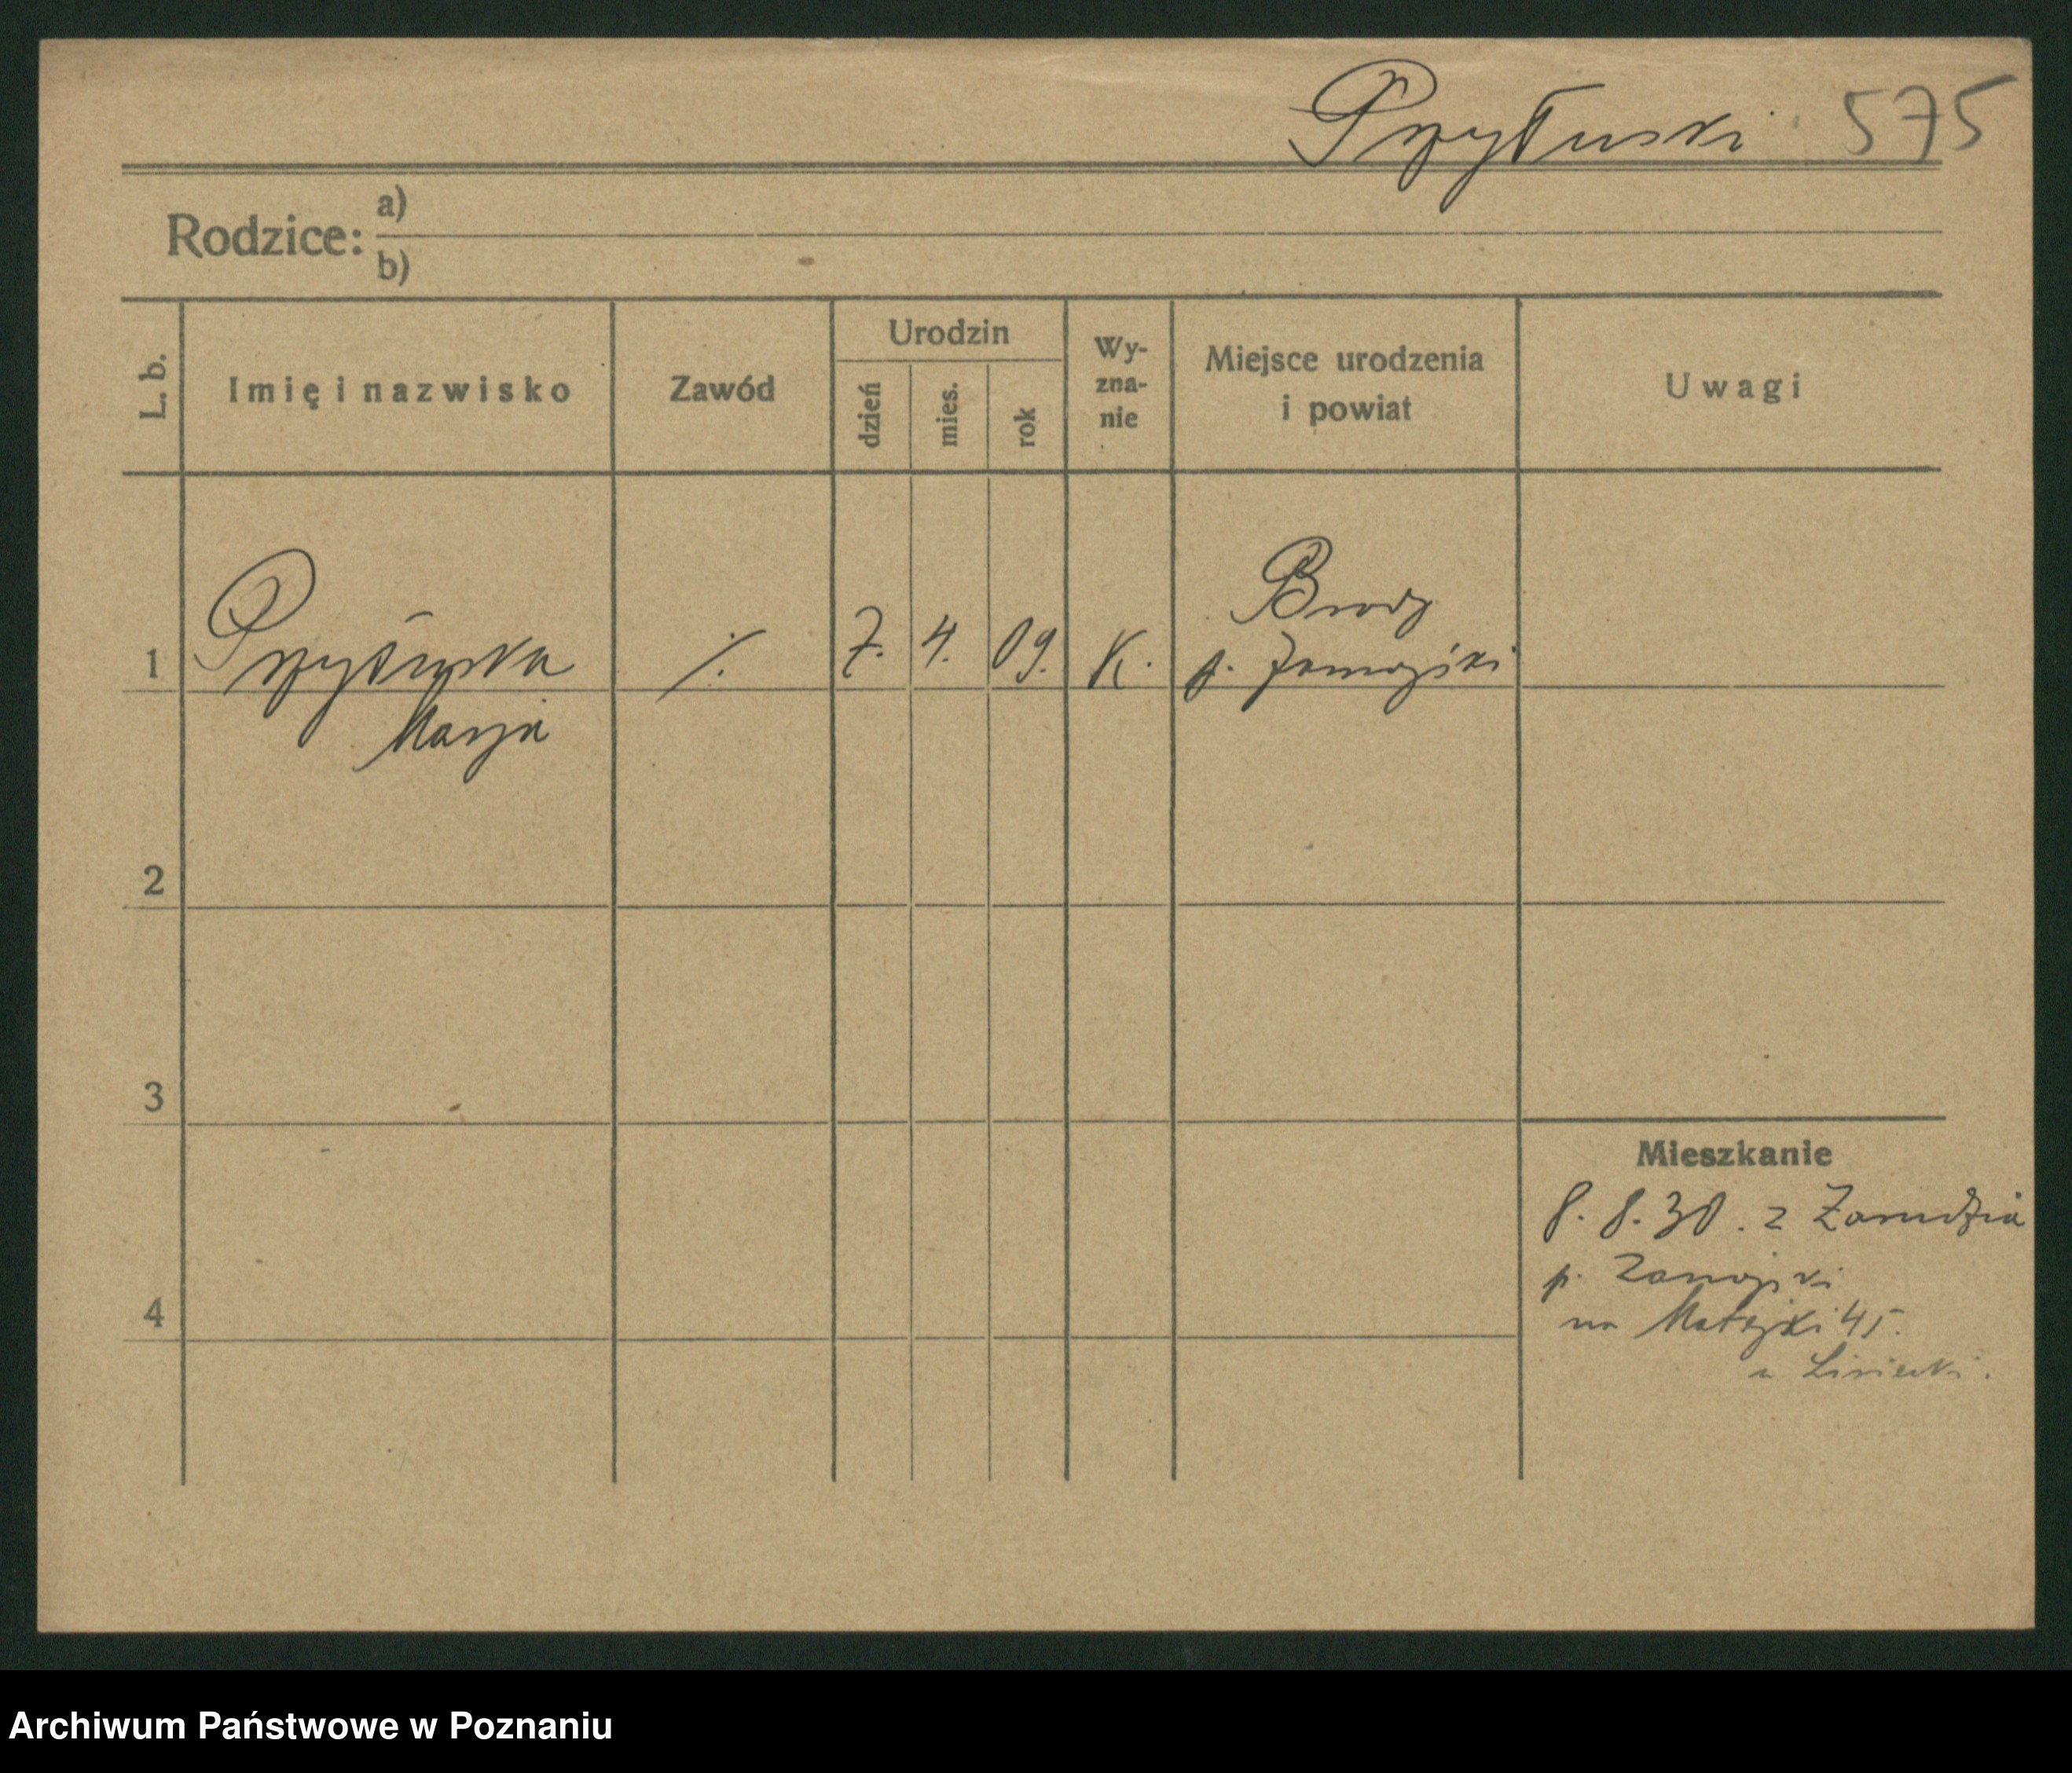 Przyłuski 575
Rodzice: a)
b)
L. b.
Imię i nazwisko
Zawód
Urodzin
dzień
mies.
rok
Wy-
zna-
nie
Miejsce urodzenia
i powiat
Uwagi
1 Przyłuska ./. 7. 4. 09. K. Brody
p. Zamojski
Marja
2
3
4
Mieszkanie
8. 8. 30. z Zarudzia
p. Zamojski
na Matejki 45.
u Lisiecki.
Archiwum Państwowe w Poznaniu